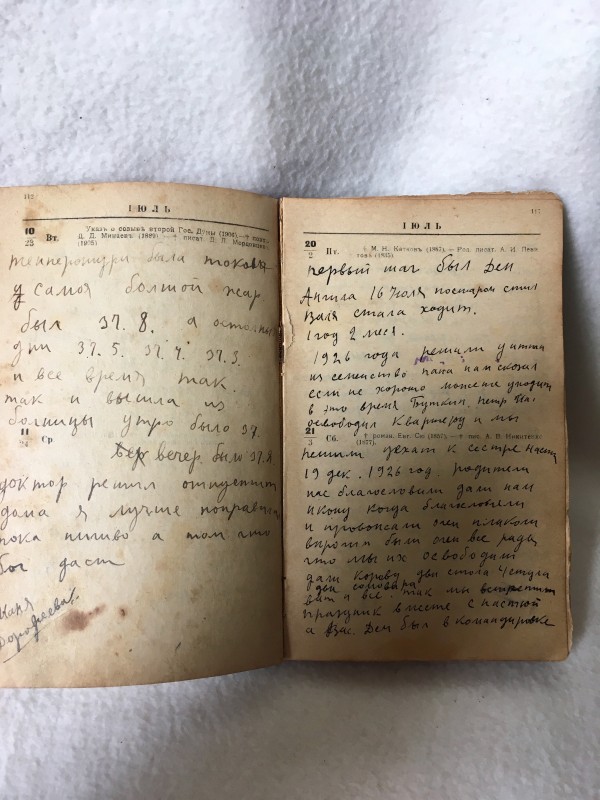 112
ІЮЛЬ
10
23
Вт.
Указъ о созывѣ второй Гос. Думы (1906).
Д. Д. Минаевъ (1889). — † писат. Д. Л. Мордовцевъ
(1905)
температури была токовая
У самоя болшой жар
был 37.8. а остолные
дни 37.5. 37.4. 37.3.
и все время так.
так и высила из
болницы утро было 37.
11
24
Ср.
вечер было 37.8
доктор решил отпустить
дома я лучше поправлюс
пока пиливо а там что
бог даст
Катя
Дорофеева.
117
ІЮЛЬ
20
2
Пт.
† М. Н. Катковъ (1887). — Род. писат. А. И. Левитовъ (1835)
первый шаг был Ден
Ангила 16 Июля постаром стил
Валя стала ходит.
1 год 2 меся.
1926 года решили уитти
из семейство папа нам сказал
если не хорошо можете уходит
в это время Буткин. петр Ив.
освободил Квартеру и мы
21
3
Сб.
† роман. Евг. Сю (1857). — † пис. А. В. Никитенко
(1877).
решили уехат к сестре Насти
19 дек. 1926 год. родители
нас благословили дали нам
икону когда благословляли
и провожали очен плакали
впрочем были очен все рады
что мы их освободили
дали Корову два стола 4 стула
два самовара
вот и все. так мы встретили
праздник вместе с настой
а Вас. Ден был в командировке